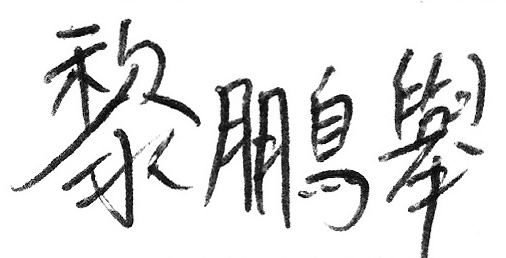 黎鵬舉